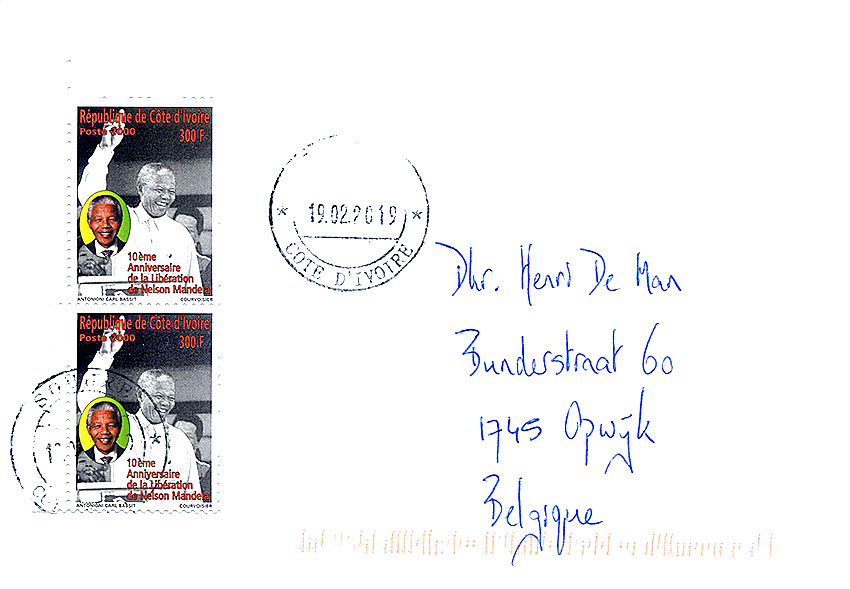 République de Côte d'Ivoire
Poste 2000 300 F
10ème
Anniversaire
de la Libération
de Nelson Mandela
ANTONIONI CARL BASSIT COURVOISIER
République de Côte d'Ivoire
Poste 2000 300 F
10ème
Anniversaire
de la Libération
de Nelson Mandela
ANTONIONI CARL BASSIT COURVOISIER
* 19.02.2019 *
COTE D'IVOIRE
Dhr. Henri De Man
Bunderstraat 60
1745 Opwijk
Belgique